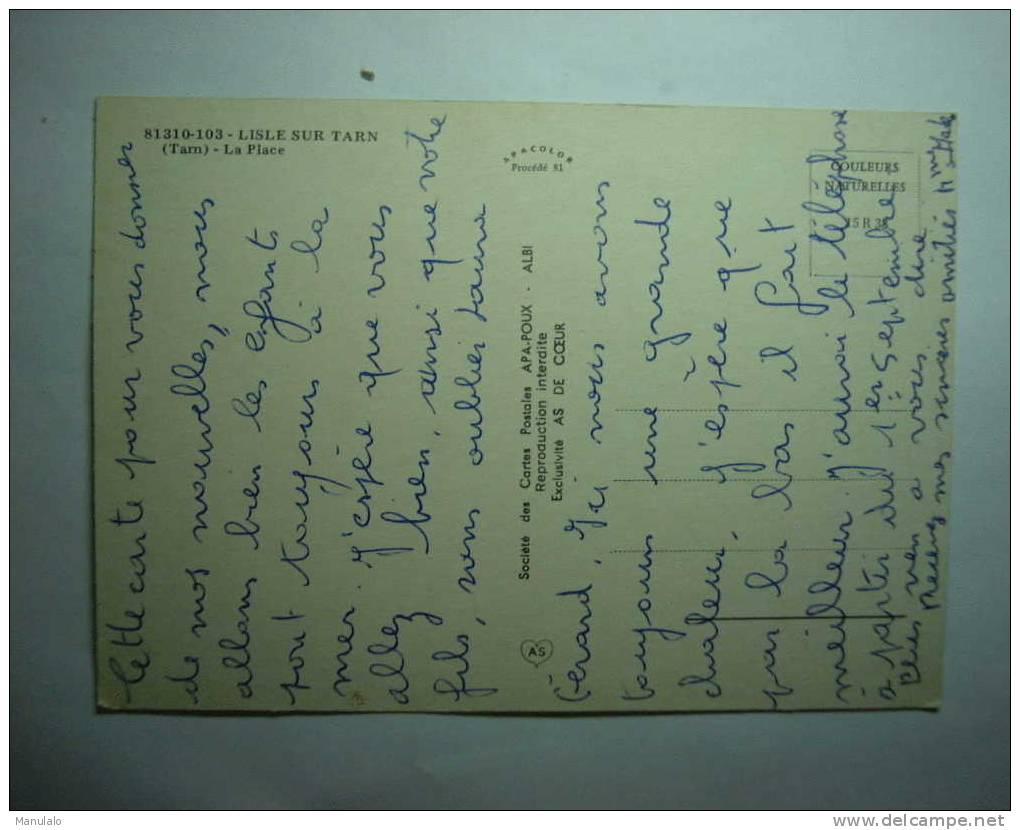 81310-103 - LISLE SUR TARN
(Tarn) - La Place
APACOLOR
Procédé 81
COULEURS
NATURELLES
15 R
Société des Cartes Postales APA-POUX - ALBI
Reproduction interdite
Exclusivité AS DE CŒUR
AS
Cette carte pour vous donner
de nos nouvelles, nous
allons bien les enfants
sont toujours à la
mer. J'espère que vous
allez bien, ainsi que votre
fils, sans oublier
Gérard, Ici nous avons
toujours une grande
chaleur, j'espère que
par la bas il fait
meilleur. J'aurai le téléphone
à partir du 1er Septembre
Plus rien a vous dire
Recevez mes sincères amitiés Mme
Manulalo
www.delcampe.com